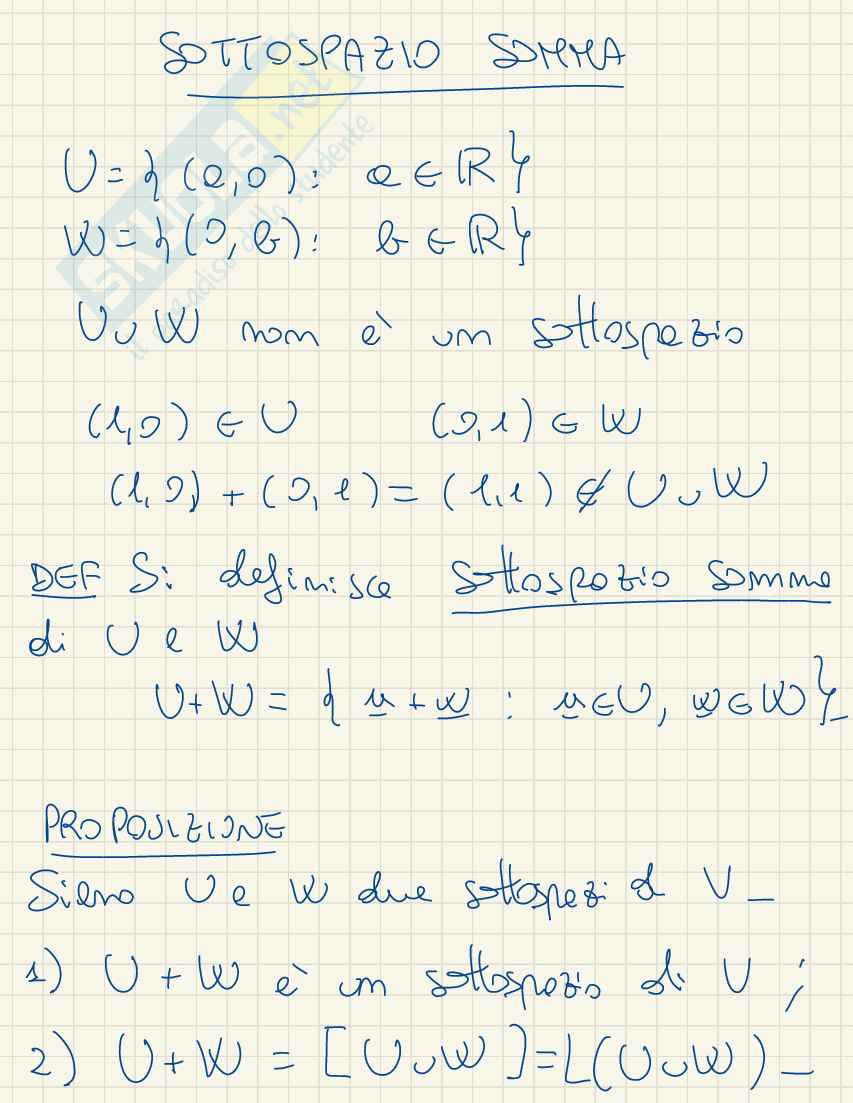 SOTTOSPAZIO SOMMA
U = {(a,0): a ∈ ℝ}
W = {(0,b): b ∈ ℝ}
U ∪ W non è un sottospazio
(1,0) ∈ U (0,1) ∈ W
(1,0) + (0,1) = (1,1) ∉ U ∪ W
DEF Si definisce sottospazio somma
di U e W
U+W = {u + w : u ∈ U, w ∈ W}
PROPOSIZIONE
Siano U e W due sottospazi di V
1) U + W è un sottospazio di V ;
2) U + W = [U ∪ W] = L(U ∪ W)
skuola.net
il paradiso dello studente